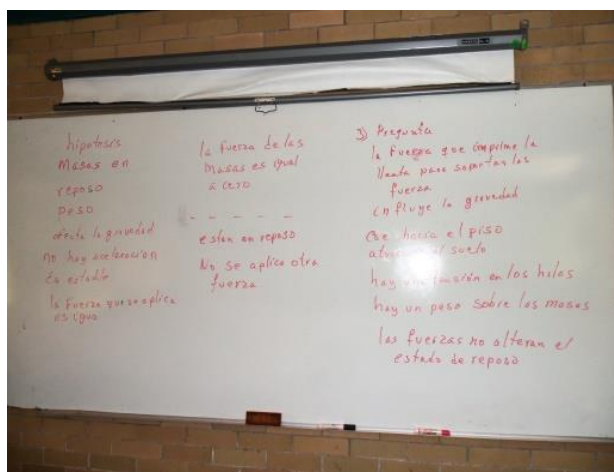 hipotesis
Masas en
reposo
Peso
afecta la gravedad
no hay aceleracion
Es estable
la Fuerza que se aplica
es igual
la fuerza de las
masas es igual
a cero
- - - - -
estan en reposo
No se aplica otra
fuerza
3) Pregunta
la Fuerza que imprime la
para soportan las
fuerza
influye la gravedad
Cae hacia el piso
al suelo
hay una tensión en los hilos
hay un peso sobre las masas
las fuerzas no alteran el
estado de reposo